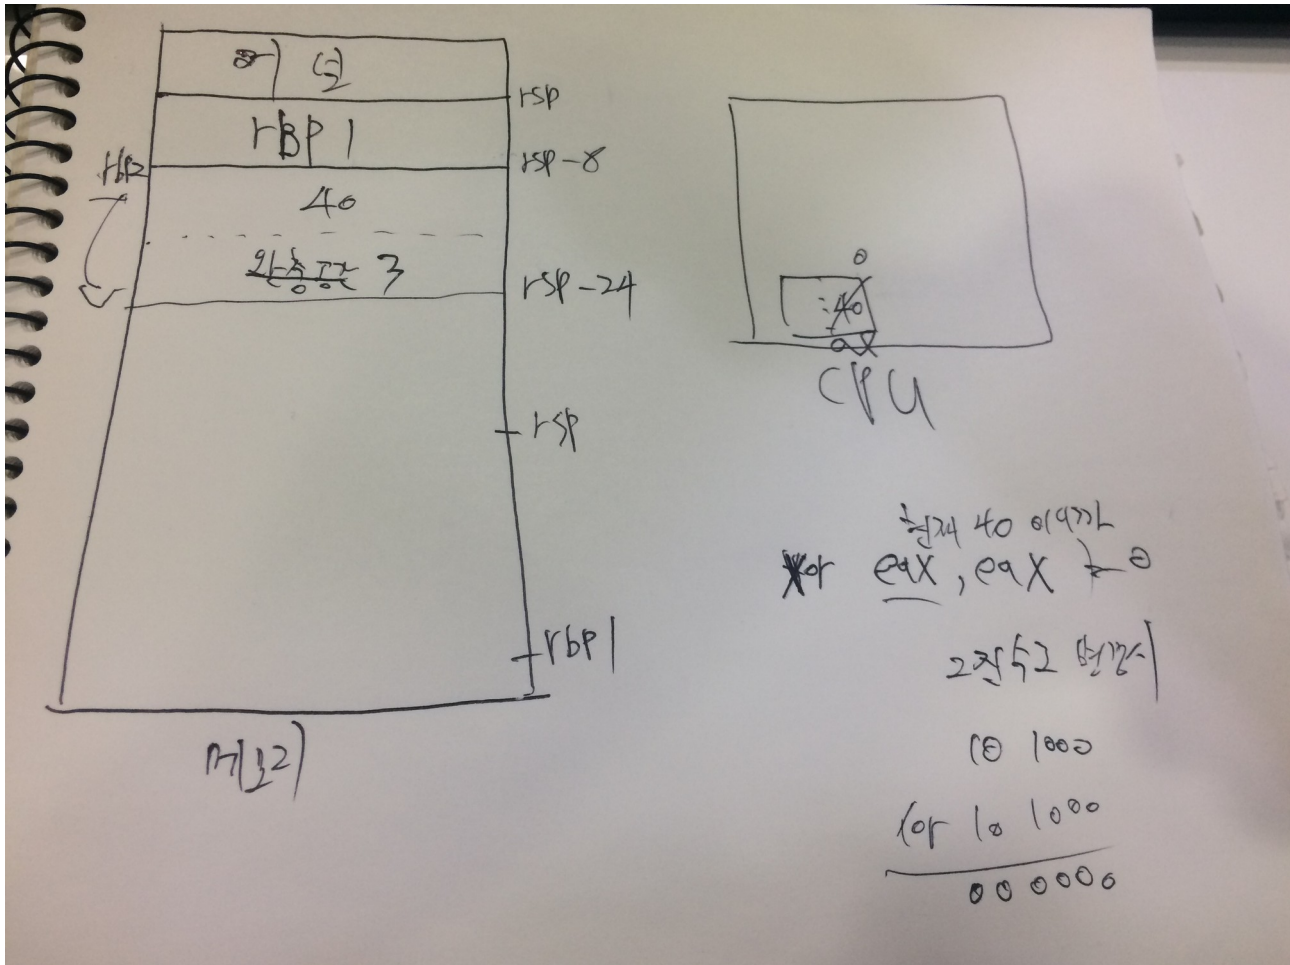 rsp
rBP 1
rbp2
rsp-8
40
3
rsp-24
rsp
rbp1
메모리
0
40
ax
CPU
현재 40 이니까
xor eax, eax → 0
2진수로 변경시
10 1000
xor 10 1000
000000